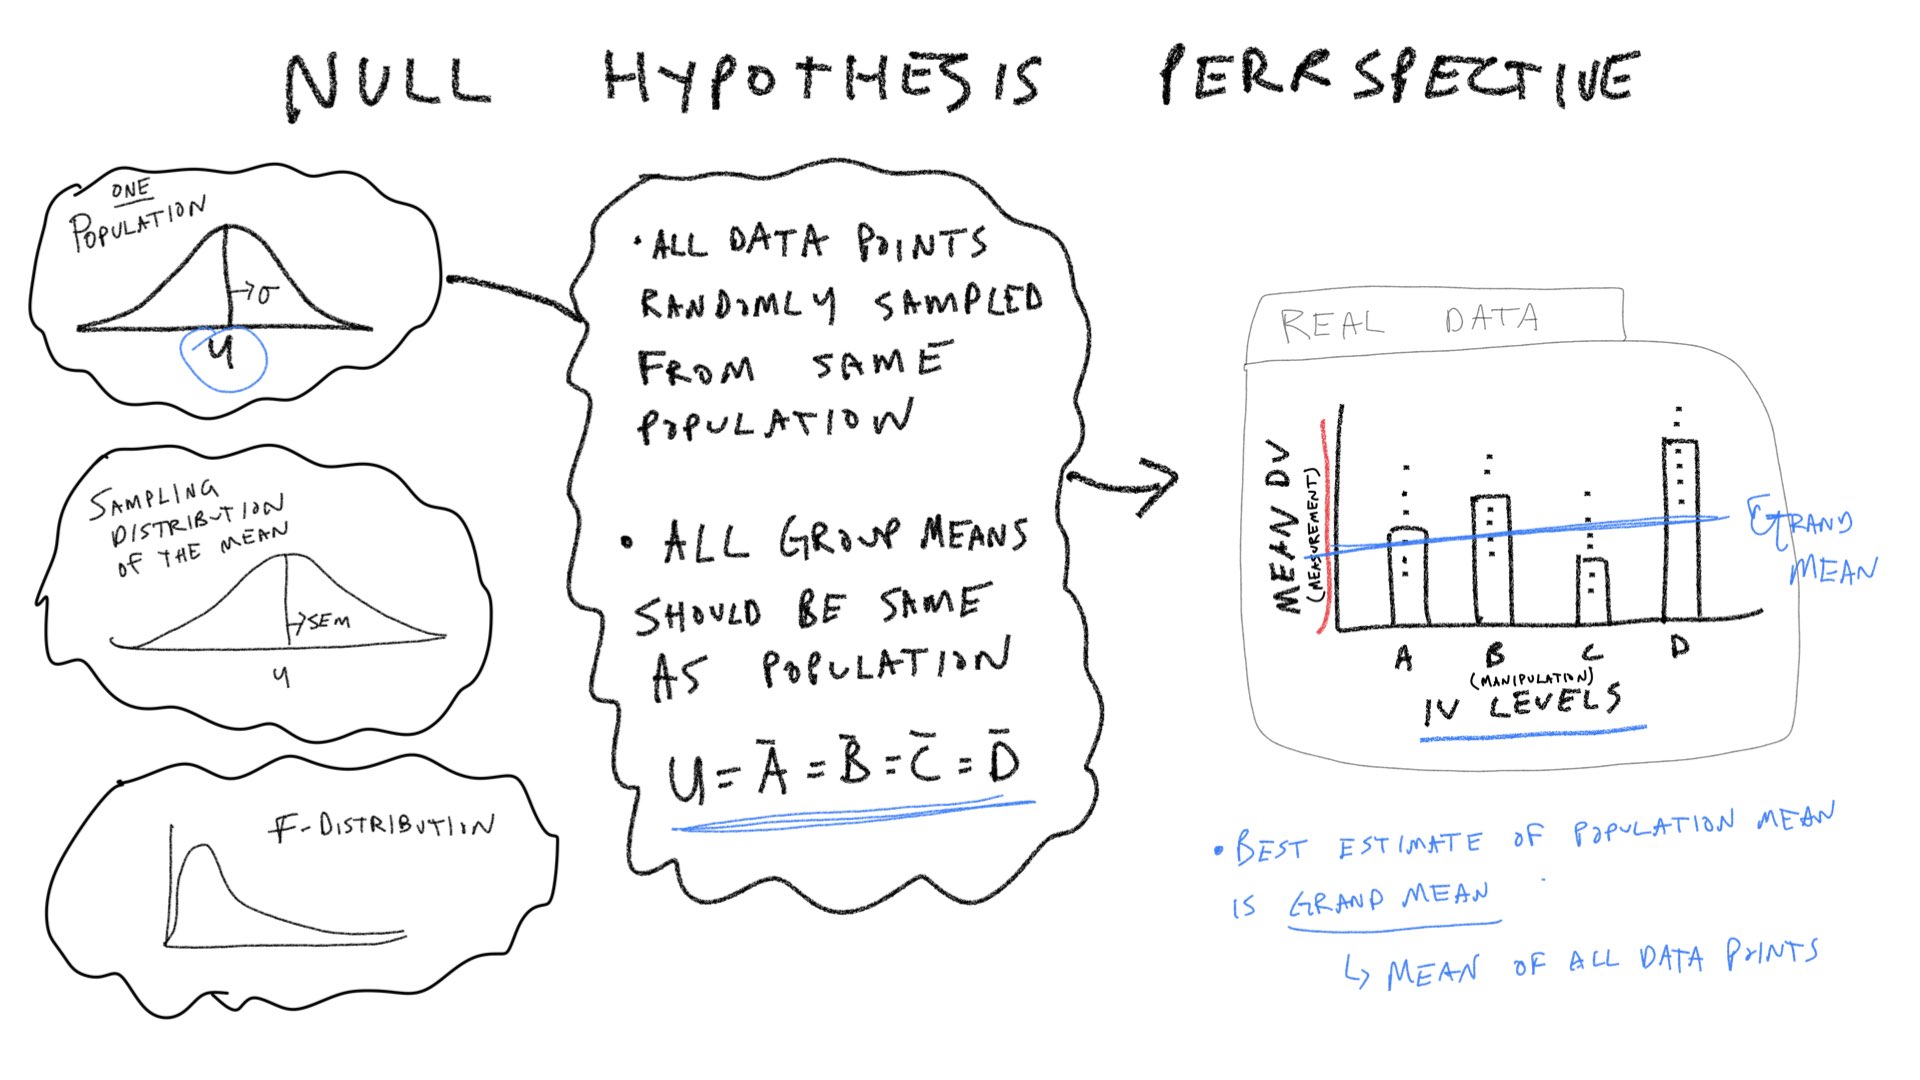 NULL HYPOTHESIS PERRSPECTIVE
ONE
POPULATION
→σ
u
SAMPLING
DISTRIBUTION
OF THE MEAN
→SEM
u
F-DISTRIBUTION
• ALL DATA POINTS
RANDOMLY SAMPLED
FROM SAME
POPULATION
• ALL GROUP MEANS
SHOULD BE SAME
AS POPULATION
u = A̅ = B̅ = C̅ = D̅
REAL DATA
MEAN DV
(MEASUREMENT)
GRAND
MEAN
A B C D
(MANIPULATION)
IV LEVELS
• BEST ESTIMATE OF POPULATION MEAN
IS GRAND MEAN
↳ MEAN OF ALL DATA POINTS